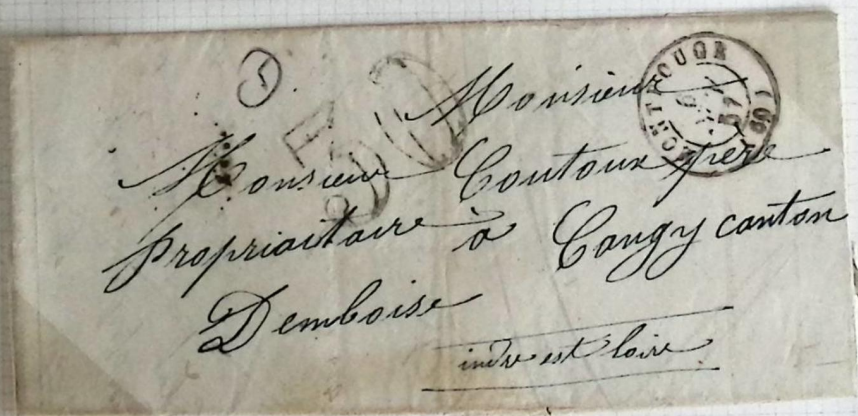 5
30
MONTROUGE (60)
57
Monsieur
Monsieur Coutoux père
Propriaitaire à Cangy canton
Demboise
indre est loire